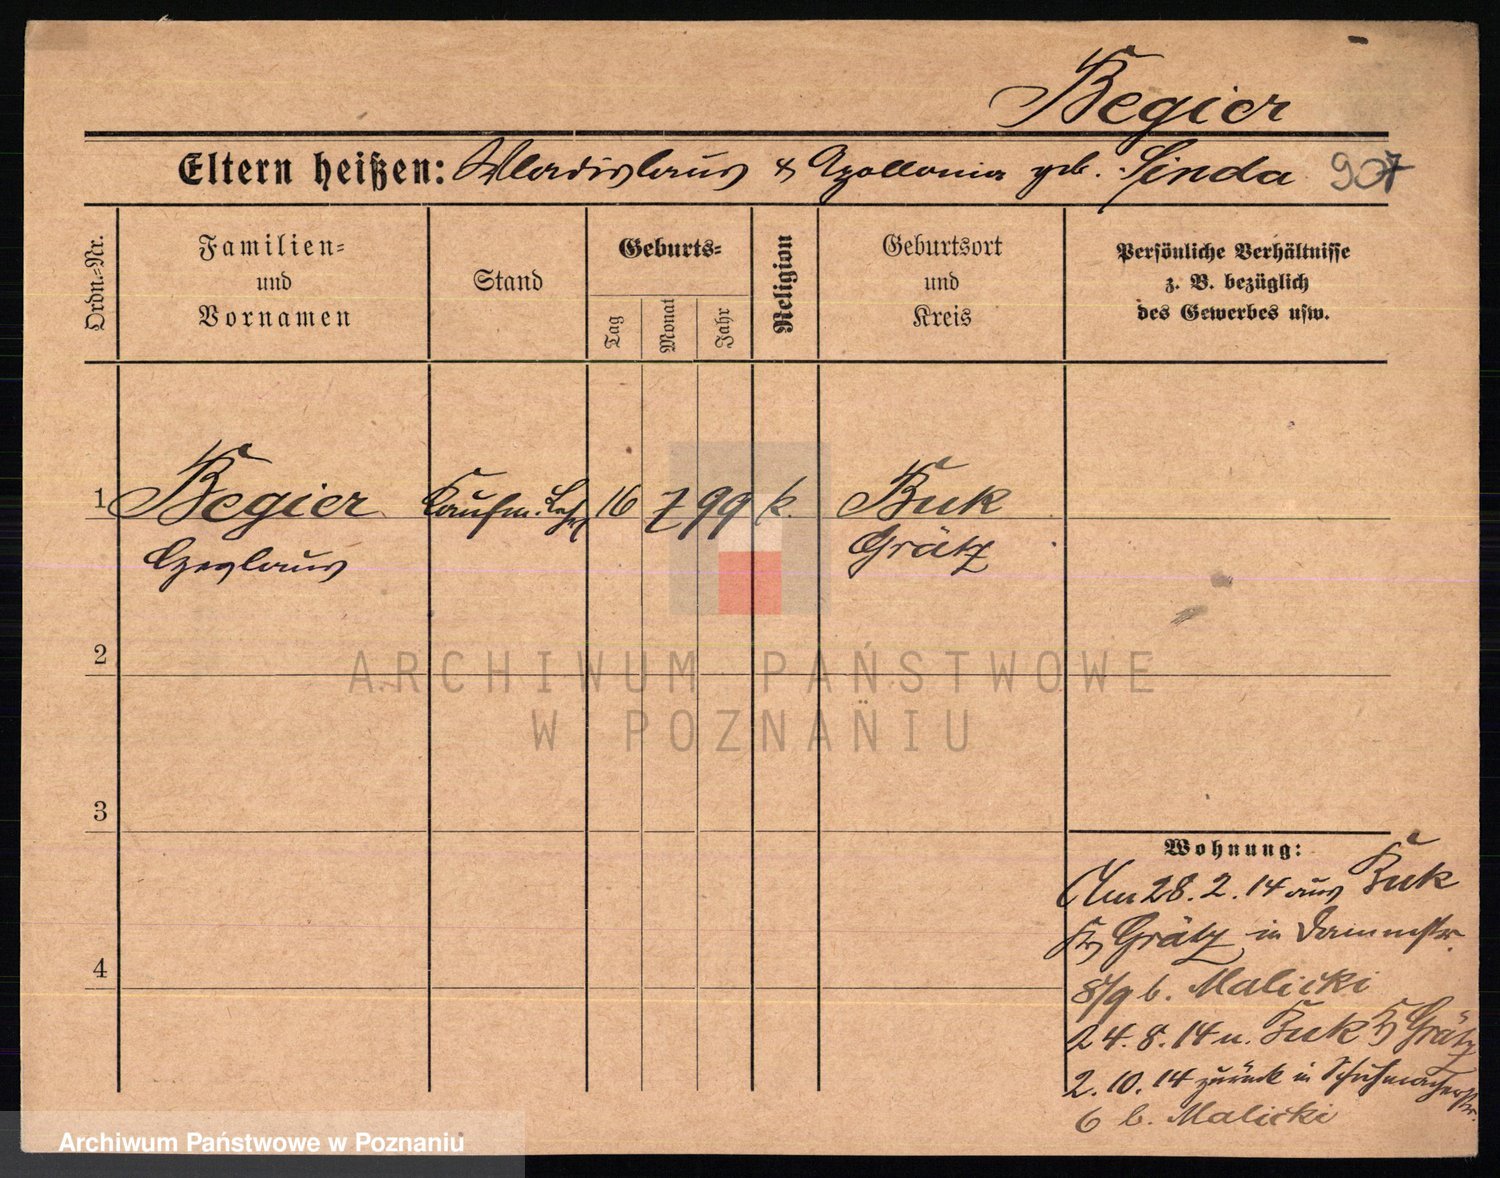 Begier
Eltern heißen: Wladislaus & Apollonia geb. Linda 907
Ordn.-Nr.
Familien-
und
Vornamen
Stand
Geburts-
Tag
Monat
Jahr
Religion
Geburtsort
und
Kreis
Persönliche Verhältnisse
z. B. bezüglich
des Gewerbes usw.
1 Begier Kaufm. Lehrl 16 7 99 k. Buk
Czeslaus Grätz
2
ARCHIWUM PAŃSTWOWE
W POZNANIU
3
Wohnung:
Am 28.2.14 aus Buk
Kr Grätz in Dammstr.
8/9 b. Malicki
4
24.8.14 n. Buk Kr Grätz
2.10.14 zurück in Schuhmacherstr.
6 b. Malicki
Archiwum Państwowe w Poznaniu